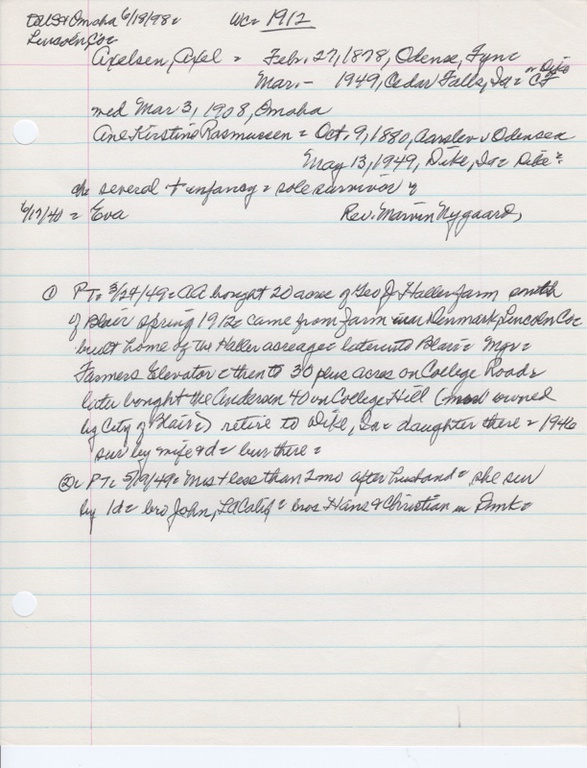 Omaha 6/18/98= WC= 1912
Lincoln Co=
Axelsen, Axel = Febr. 27, 1878, Odense, Fyne
Mar. - 1949, Cedar Falls, Ia = or Dike CF
med Mar 3, 1908, Omaha
Ane Kirstine Rasmussen = Oct. 9, 1880, Aarslev v Odensea
May 13, 1949, Dike, Ia = Dike =
ch several + infancy = sole survivor =
6/17/40 = Eva Rev. Marvin Nygaard,
① PT= 3/24/49= AA bought 20 acres of Geo J Haller farm south
of Blair spring 1912= came from farm near Denmark, Lincoln Co=
built home of the Haller acreage= later into Blair= Mgr=
Farmers Elevator= then to 30 plus acres on College Road=
later bought the Anderson 40 on College Hill (now owned
by City of Blair=) retire to Dike, Ia= daughter there= 1946
sur by wife & d= bur there=
②= PT= 5/19/49= Mrs + less than 2 mo after husband= she sur
by 1d= bro John, LA Calif= bros Hans & Christian in Dmk=